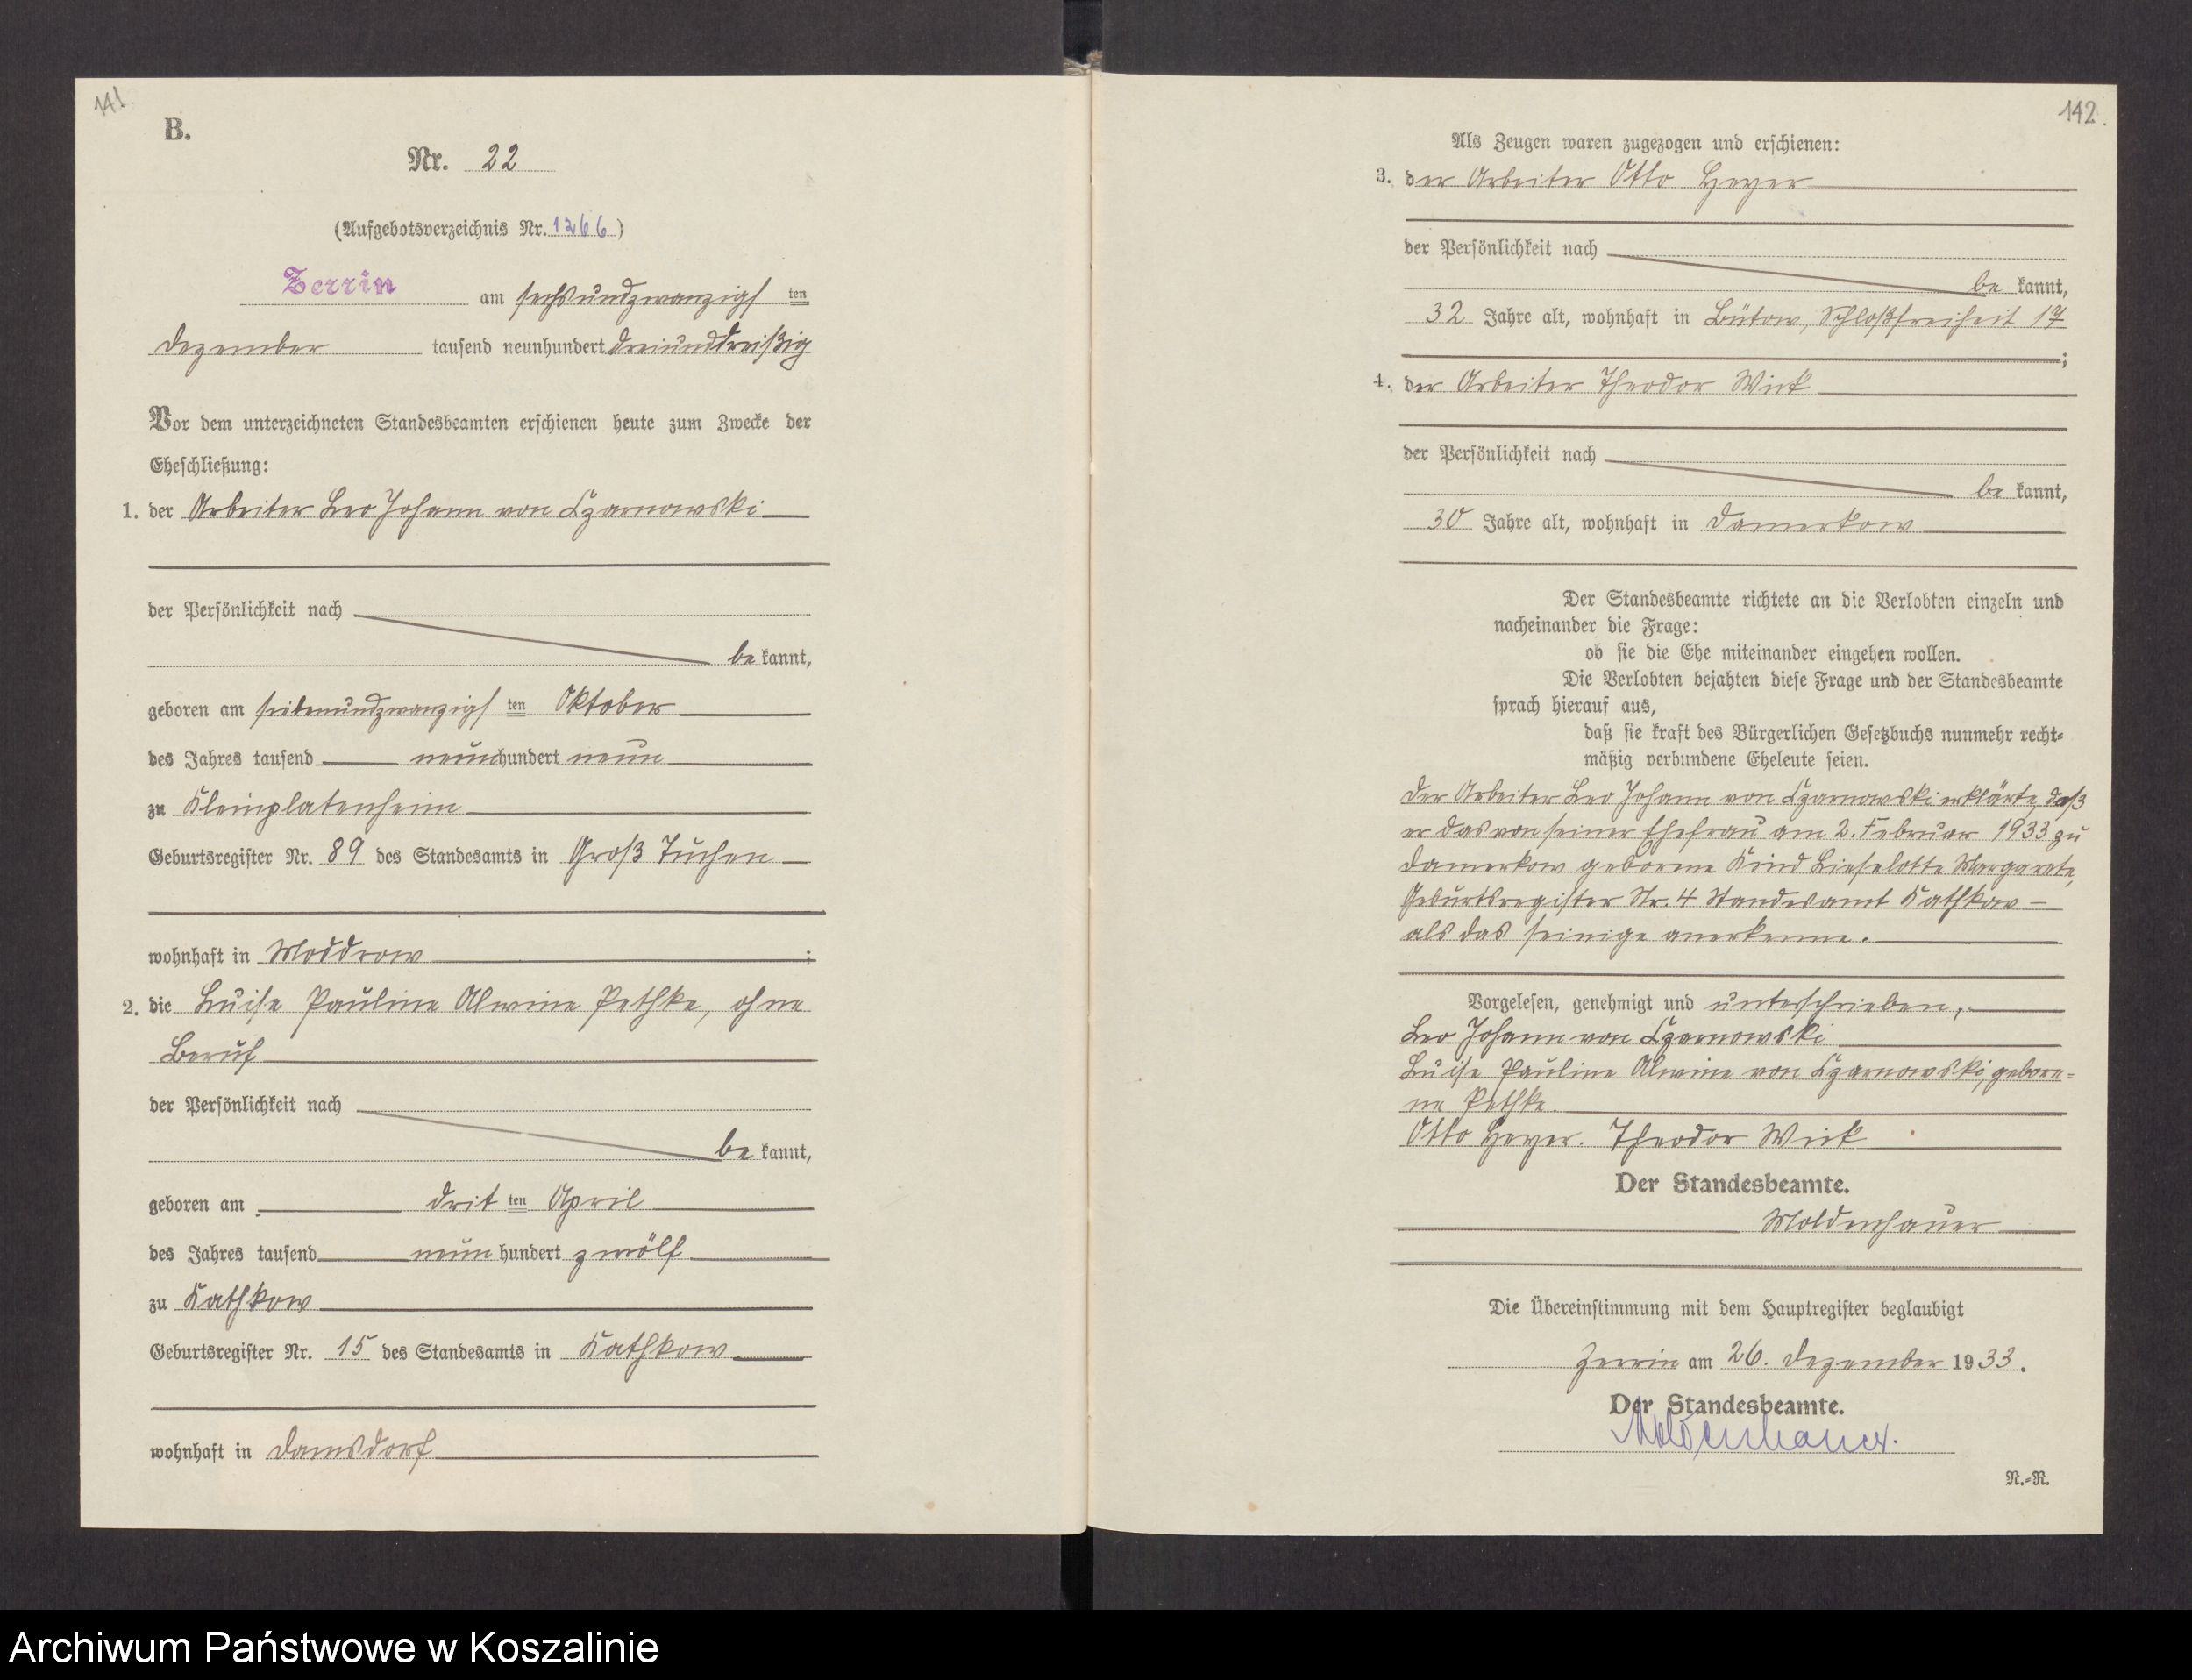 141
B.
Nr. 22
(Aufgebotsverzeichnis Nr. 1266)
Zerrin am sechsundzwanzigsten
Dezember tausend neunhundert dreiunddreißig
Vor dem unterzeichneten Standesbeamten erschienen heute zum Zwecke der
Eheschließung:
1. der Arbeiter Leo Johann von Czarnowski
der Persönlichkeit nach
be kannt,
geboren am siebenundzwanzigsten Oktober
des Jahres tausend neunhundert neun
zu Kleinplatenheim
Geburtsregister Nr. 89 des Standesamts in Groß Tuchen
wohnhaft in Moddrow ;
2. die Luise Pauline Alwine Pethke, ohne
Beruf
der Persönlichkeit nach
be kannt,
geboren am dritten April
des Jahres tausend neun hundert zwölf
zu Kathkow
Geburtsregister Nr. 15 des Standesamts in Kathkow
wohnhaft in Damsdorf
142.
Als Zeugen waren zugezogen und erschienen:
3. der Arbeiter Otto Heyer
der Persönlichkeit nach
be kannt,
32 Jahre alt, wohnhaft in Bütow, Schloßfreiheit 17
;
4. der Arbeiter Theodor Wirk
der Persönlichkeit nach
be kannt,
30 Jahre alt, wohnhaft in Damerkow
Der Standesbeamte richtete an die Verlobten einzeln und
nacheinander die Frage:
ob sie die Ehe miteinander eingehen wollen.
Die Verlobten bejahten diese Frage und der Standesbeamte
sprach hierauf aus,
daß sie kraft des Bürgerlichen Gesetzbuchs nunmehr recht-
mäßig verbundene Eheleute seien.
Der Arbeiter Leo Johann von Czarnowski erklärte, daß
er das von seiner Ehefrau am 2. Februar 1933 zu
Damerkow geborene Kind Lieselotte Margarete,
Geburtsregister Nr. 4 Standesamt Kathkow –
als das seinige anerkenne.
Vorgelesen, genehmigt und unterschrieben,
Leo Johann von Czarnowski
Luise Pauline Alwine von Czarnowski, gebore-
ne Pethke.
Otto Heyer. Theodor Wirk
Der Standesbeamte.
Moldenhauer
Die Übereinstimmung mit dem Hauptregister beglaubigt
Zerrin am 26. Dezember 1933.
Der Standesbeamte.
Moldenhauer.
N.-R.
Archiwum Państwowe w Koszalinie